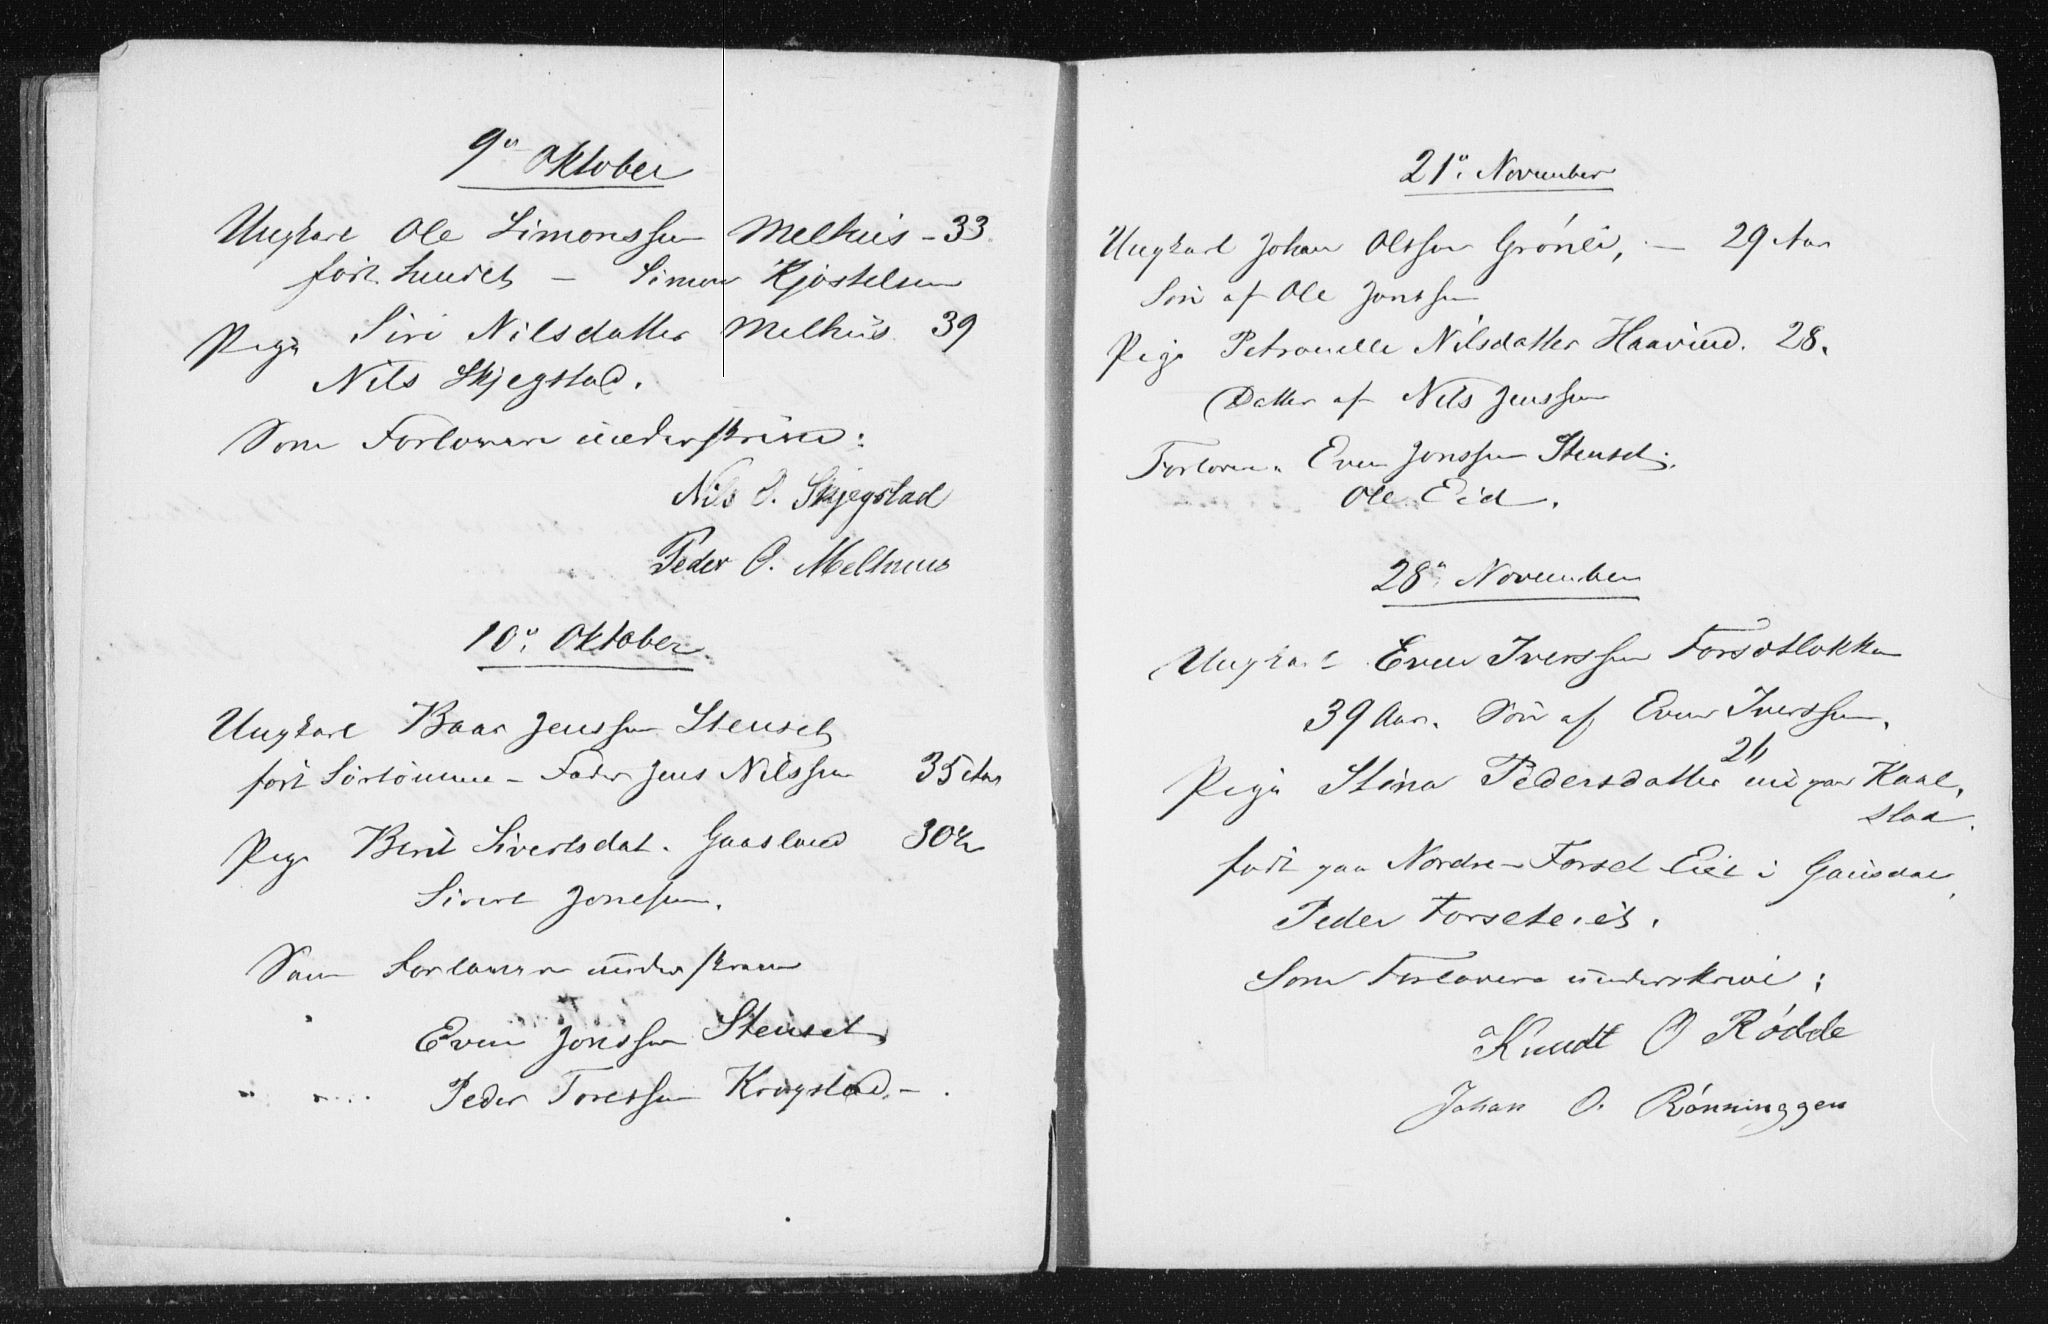 9de Oktober
Ungkarl Ole Simonssen Melhus - 33
født hersteds - Simon Kjøstelsen
Pige Siri Nilsdatter Melhus 39
Nils Skjegstad.
Som Forlovere underskrive:
Nils O. Skjegstad
Peder O. Melhuus
10de Oktober
Ungkarl Baar Jenssen Stenset
født Sørlømme - Fader Jens Nilssen 35 Aar
Pige Berit Sivertsdat. Gaasland 30
Sivert Jonssen.
Som Forlovere underskrive
Even Jonssen Stenset
Peder Toressen Krogstad -
21de November
Ungkarl Johan Olssen Grønli, - 29 Aar
Søn af Ole Jonssen
Pige Petronelle Nilsdatter Haavind. 28.
Datter af Nils Jenssen
Forlovere Even Jonssen Stenset.
Ole Eid.
28de November
Ungkarl Even Iverssen Forsetløkken
39 Aar. Søn af Even Iverssen.
Pige Stina Pedersdatter 26 nu paa Kaal-
staa.
født paa Nordre Forset Eie i Gausdal,
Peder Forseteiet.
Som Forlovere underskrive:
Knudt O Rødde
Johan O. Rønninggen